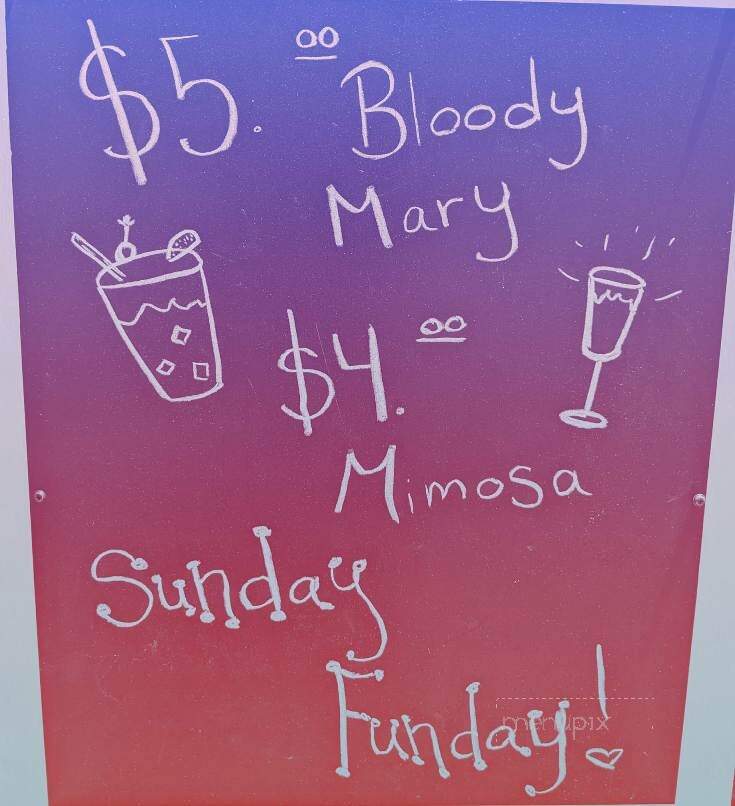 $5.00 Bloody
Mary
$4.00
Mimosa
Sunday
Funday!
menupix